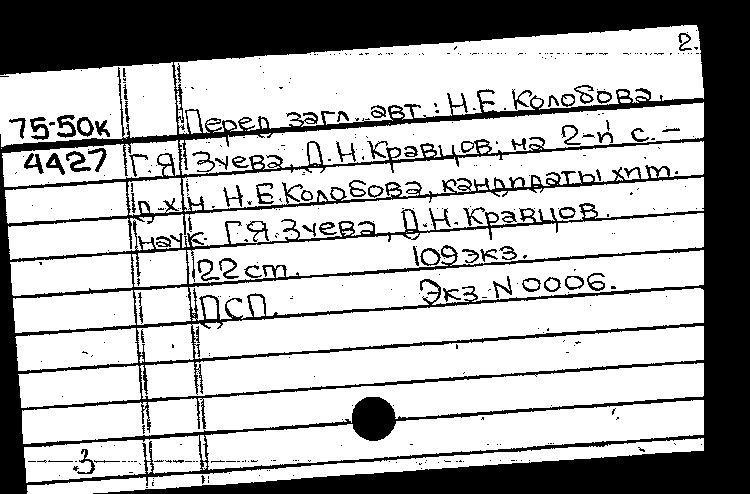 2.
75-50к Перед загл. авт.: Н.Е. Колобова,
4427 Г.Я. Зуева, Д.Н. Кравцов; на 2-й с. –
д.х.н. Н.Е. Колобова, кандидаты хим.
наук Г.Я. Зуева, Д.Н. Кравцов.
22 ст. 109 экз.
ДСП. Экз. N 0006.
3